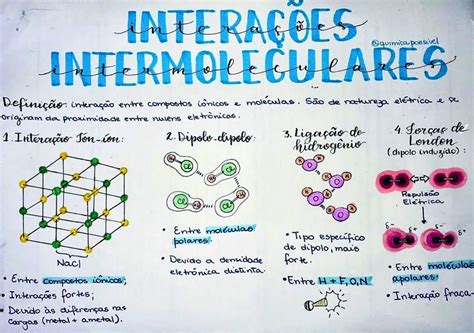 INTERAÇÕES
interações
@quimicapossivel
INTERMOLECULARES
intermoleculares
Definição: interação entre compostos iônicos e moléculas. São de natureza elétrica e se
originam da proximidade entre nuvens eletrônicas.
1. Interação Íon-íon:
NaCl
• Entre compostos iônicos;
• Interações fortes;
• Devido às diferenças nas
cargas (metal + ametal).
2. Dipolo-dipolo:
H Cl
H Cl
• Entre moléculas
polares.
• Devido a densidade
eletrônica distinta.
3. Ligação de
hidrogênio
• Tipo específico
de dipolo, mais
forte.
• Entre H + F,O,N
4. Forças de
London
(dipolo induzido):
Repulsão
Elétrica
δ- δ+ δ-
• Entre moléculas
apolares.
• Interação fraca